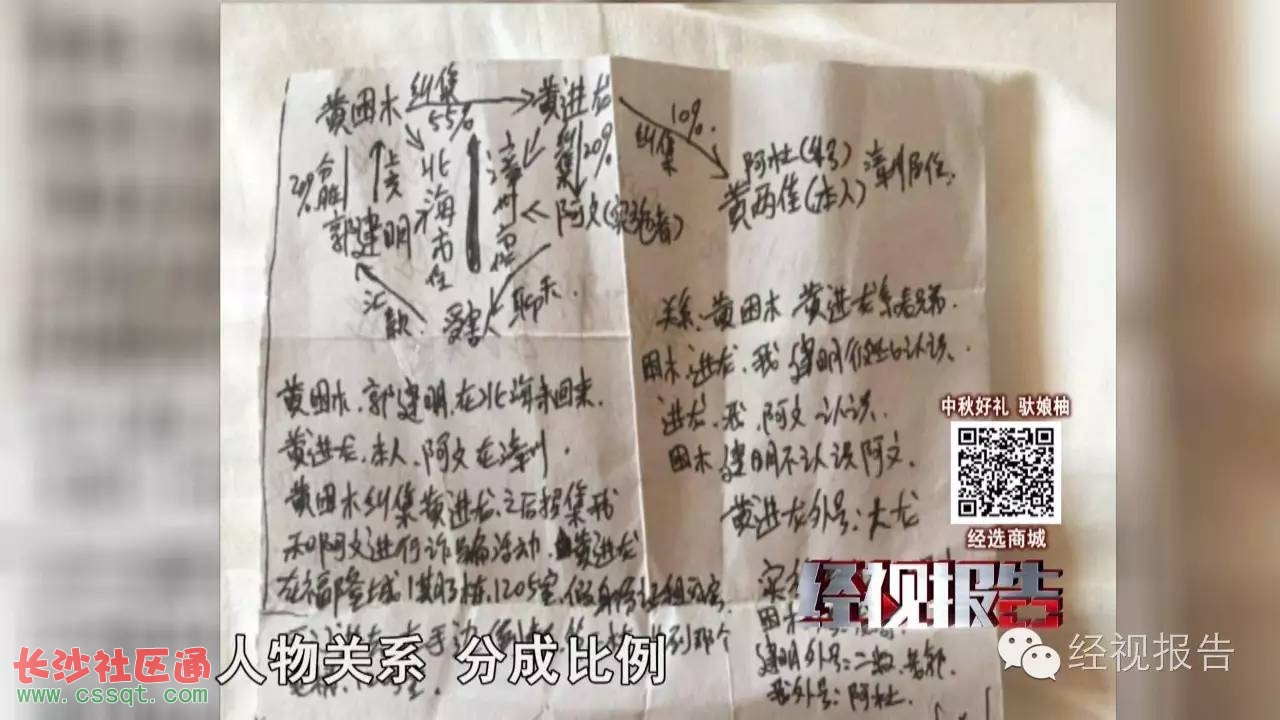 黄团木 纠集 黄进龙
55%
10%
纠集
纠集 20%
20% 分赃
上交
北海市住
漳州市住
郭建明
阿文(实施者)
阿杜(外号) 漳州居住
黄两佳(本人)
汇款
受害人 聊天
黄团木、郭建明,在北海来回来。
黄进龙、本人、阿文在漳州。
黄团木纠集黄进龙、之后招集我
和阿文进行诈骗活动、黄进龙
在福隆城1期 栋、1205室,假身份证租
关系、黄团木 黄进龙系表兄弟.
团木、进龙、我 建明 认识、
进龙、我、阿文认识
团木 建明不认识阿文、
黄进龙外号:大龙
团木
建明外号:二
我外号:阿杜.
中秋好礼 驮娘柚
经选商城
经视报告
经视报告
人物关系 分成比例
长沙社区通
www.cssqt.com